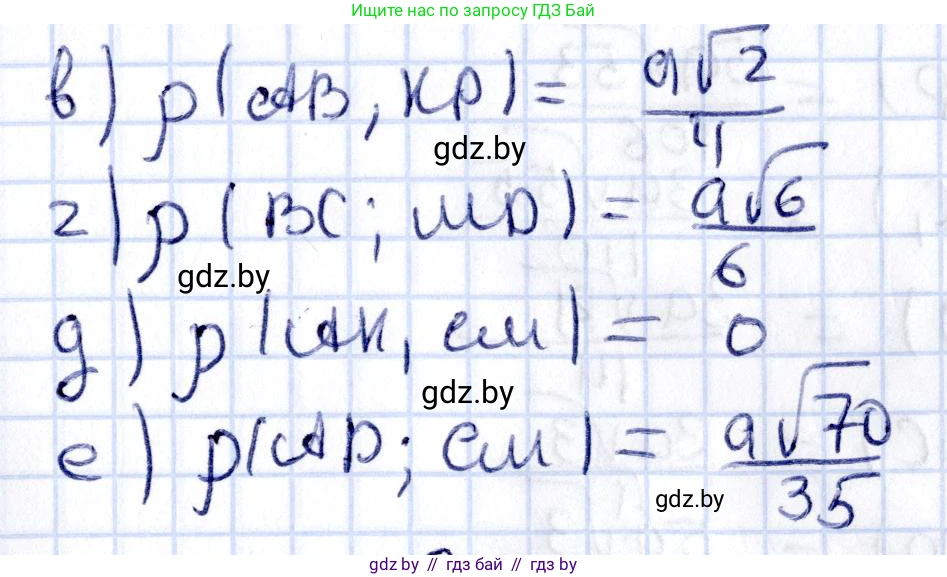 Ищите нас по запросу ГДЗ Бай
в) ρ(AB, KP) = a√2/4
gdz.by
г) ρ(BC; MD) = a√6/6
gdz.by
д) ρ(AK, CM) = 0
gdz.by
е) ρ(AP; CM) = a√70/35
gdz.by
gdz бай // гдз бай // gdz by